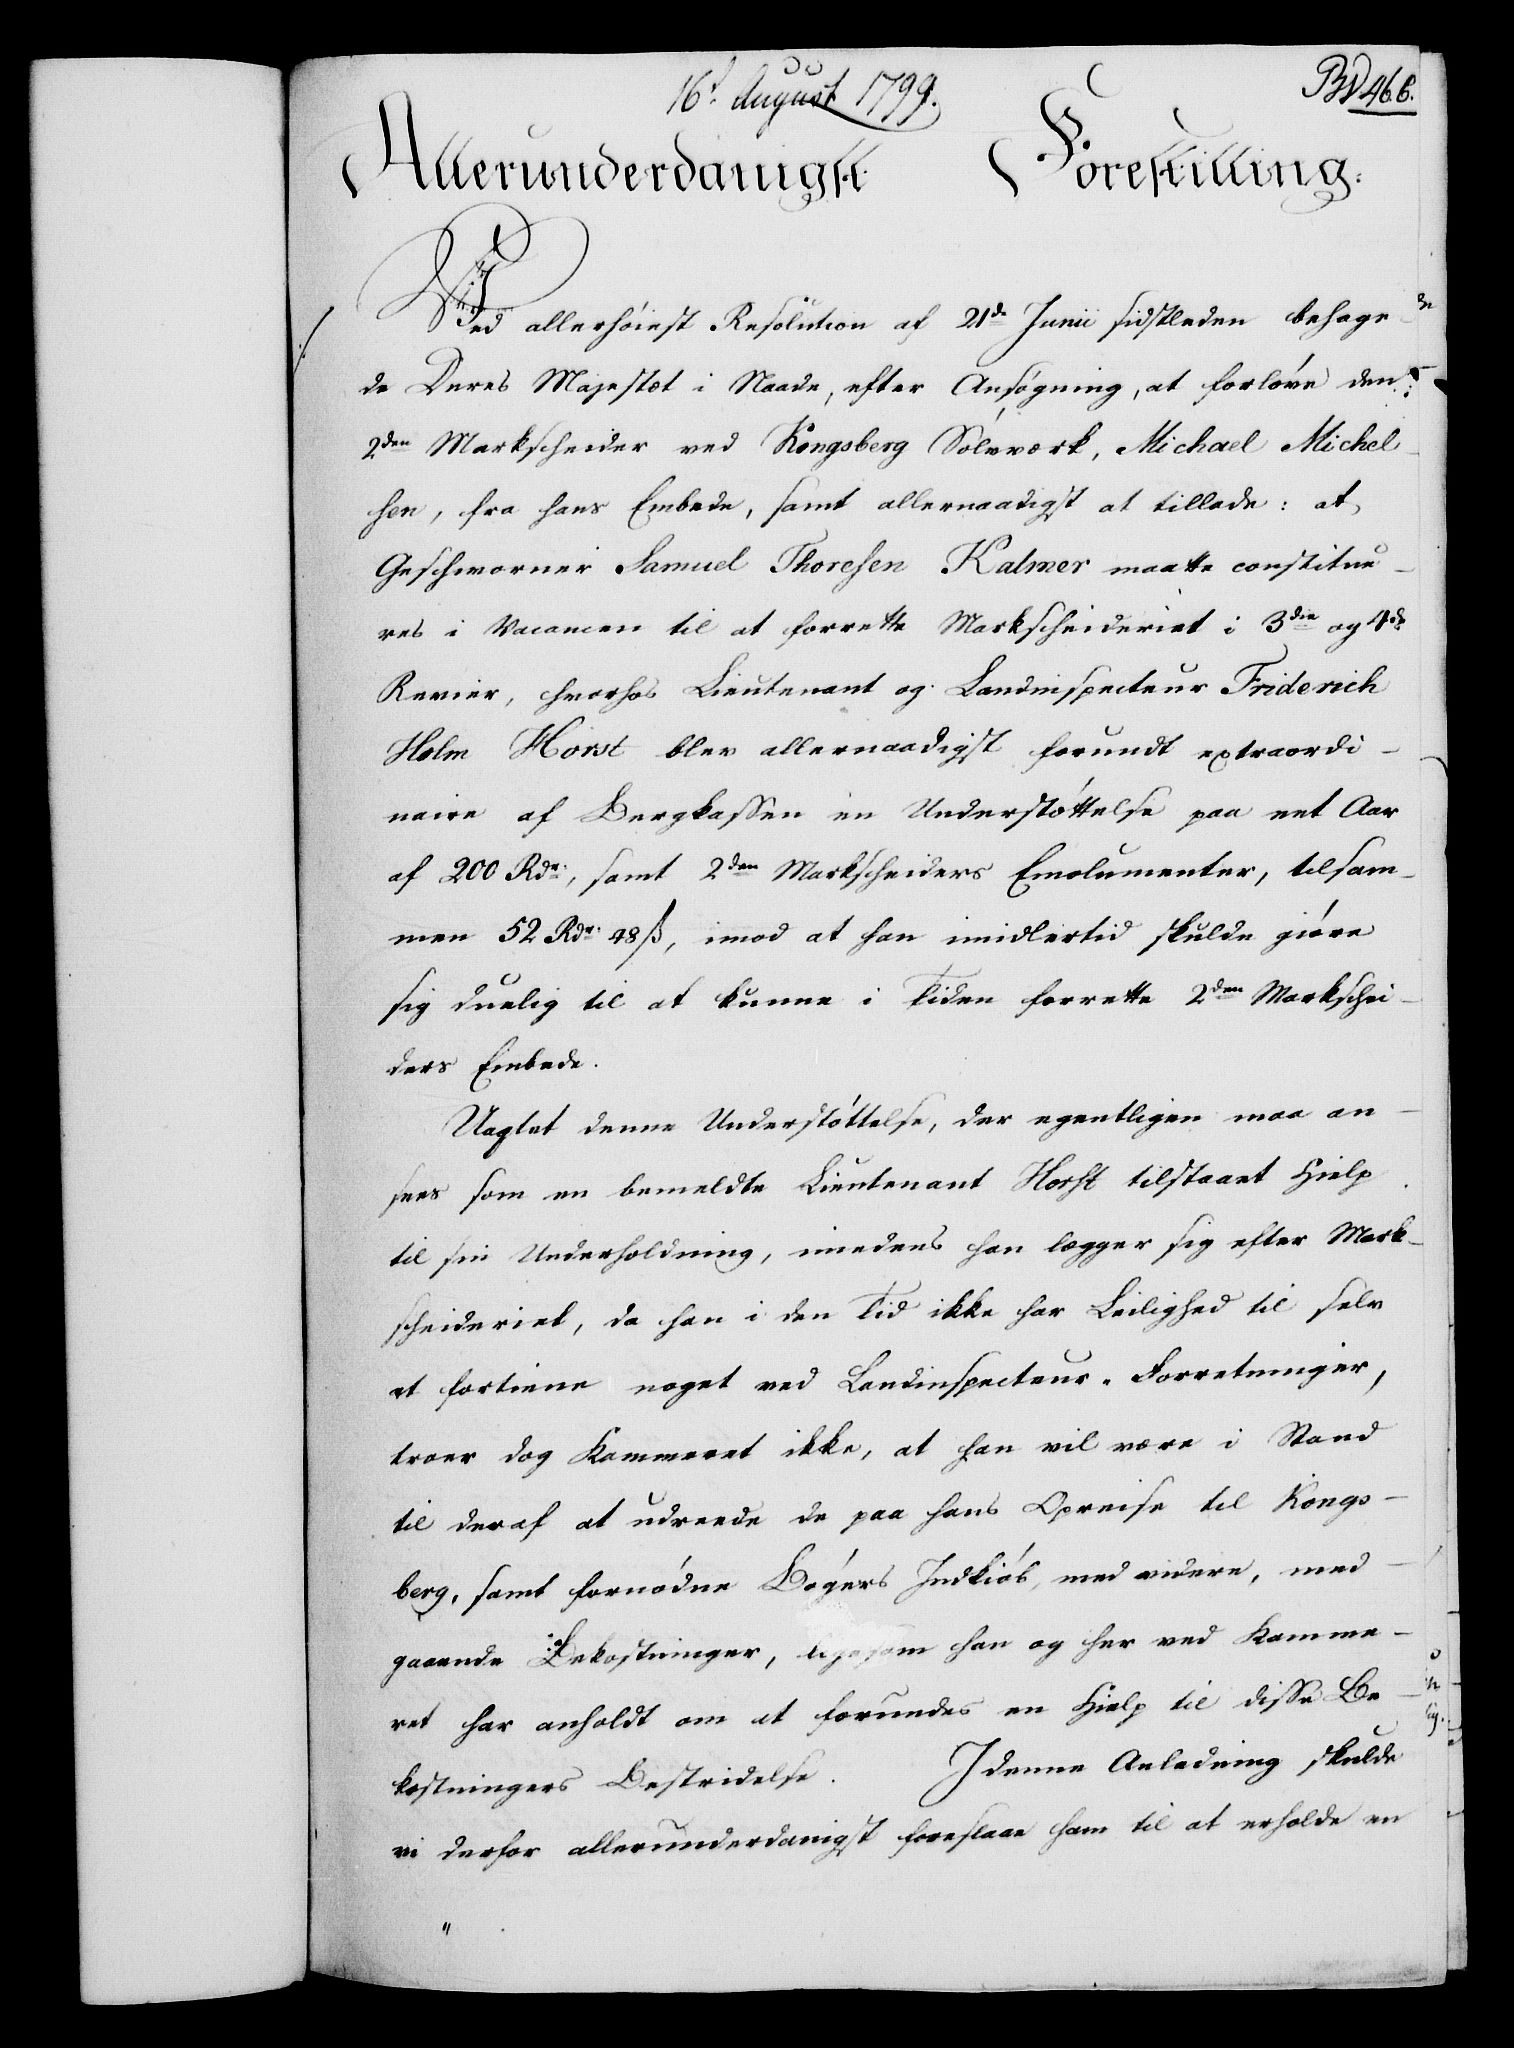 16d August 1799.
BN 466.
Allerunderdanigst Forestilling.
Ved allerhöiest Resolution af 21de Junii sidstleden behage-
de Deres Majestæt i Naade, efter Ansögning, at forlöve den
2den Markscheider ved Kongsberg Sölvværk, Michael Michel-
sen, fra hans Embede, samt allernaadigst at tillade: at
Geschworner Samuel Thoresen Kalmer maatte constitue-
res i Vacancen til at forrette Markscheideriet i 3die og 4de
Revier, hvorhos Lieutenant og Landinspecteur Friderich
Holm Horst blev allernaadigst forundt extraordi-
naire af Bergkassen en Understöttelse paa eet Aar
af 200 Rdr:, samt 2den Markscheiders Emolumenter, tilsam-
men 52 Rdr: 48 ß, imod at han imidlertid skulde giöre
sig duelig til at kunne i Tiden forrette 2den Markschei-
ders Embede.
Uagtet denne Understöttelse, der egentligen maa an-
sees som en bemeldte Lieutenant Horst tilstaaet Hielp
til sin Underholdning, imedens han lægger sig efter Mark-
scheideriet, da han i den Tid ikke har Leilighed til selv
at fortiene noget ved Landinspecteur-Forretninger,
troer dog Kammeret ikke, at han vil være i Stand
til deraf at udreede de paa hans Opreise til Kongs-
berg, samt fornödne Bögers Indkiöb, med videre, med-
gaaende Bekostninger, ligesom han og her ved Kamme-
ret har anholdt om at forundes en Hielp til disse Be-
kostningers Bestridelse. I denne Anledning skulde
vi derfor allerunderdanigst foreslaae ham til at erholde en